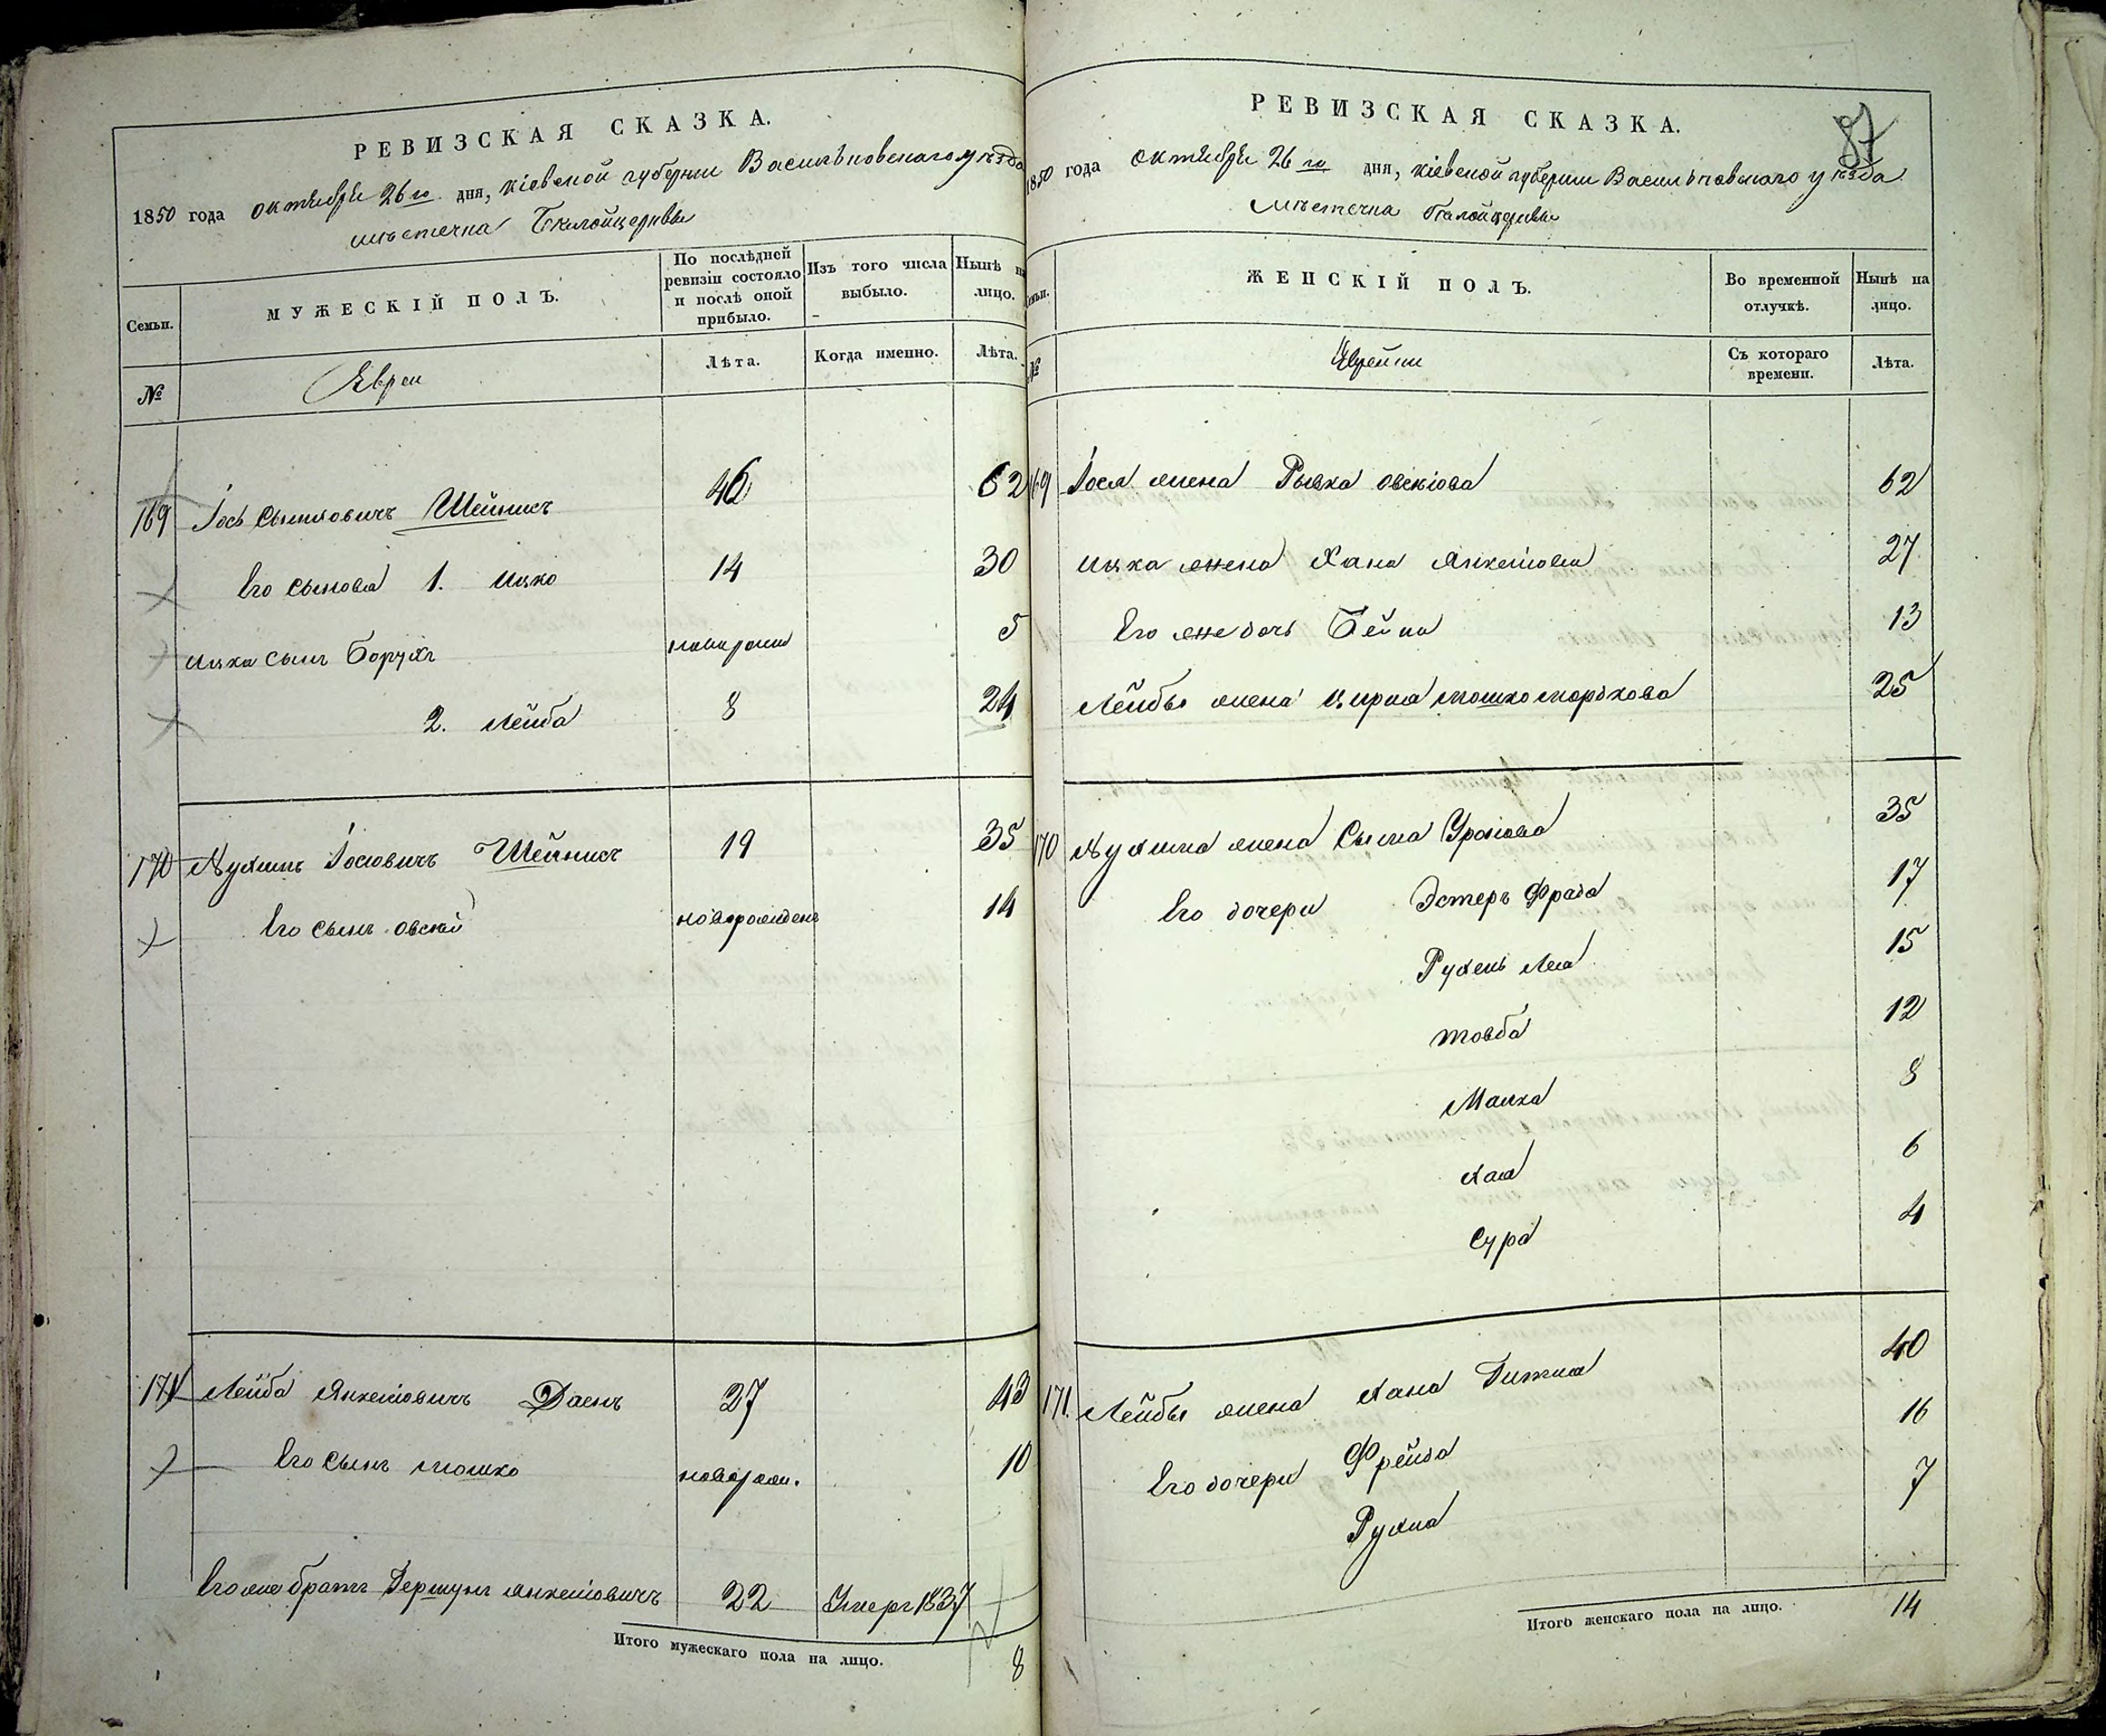 РЕВИЗСКАЯ СКАЗКА.
1850 года октября 26го дня, кіевской губерніи Васильковскаго уѣзда
мѣстечка Бѣлойцеркви
Семьи.
МУЖЕСКІЙ ПОЛЪ.
По послѣдней ревизіи состояло и послѣ оной прибыло.
Изъ того числа выбыло.
Нынѣ на лицо.
№
Евреи
Лѣта.
Когда именно.
Лѣта.
169 Іось Сымховичъ Шейнисъ 46 62
Его сыновья 1. Ицко 14 30
Ицка сынъ Борухъ новорожд 5
2. Лейба 8 24
170 Нухимъ Іосіовичъ Шейнисъ 19 35
Его сынъ Овсей новорожденъ 14
171 Лейба Янкеліовичъ Даенъ 27 43
Его сынъ Мошко новорож. 10
Его же братъ Гершунъ Янкеліовичъ 22 Умеръ 1837
Итого мужескаго пола на лицо. 8
87
РЕВИЗСКАЯ СКАЗКА.
1850 года октября 26го дня, кіевской губерніи Васильковскаго уѣзда
мѣстечка Бѣлойцеркви
Семьи.
ЖЕНСКІЙ ПОЛЪ.
Во временной отлучкѣ.
Нынѣ на лицо.
№
Еврейки
Съ котораго времени.
Лѣта.
169 Іося жена Рывка Овсіова 62
Ицка жена Хана Янкеліова 27
Его же дочь Бейла 13
Лейбы жена Цирля Мошкомордкова 25
170 Нухима жена Сыма Сролова 35
Его дочери Эстеръ Фрада 17
Рухель Лея 15
Товба 12
Малка 8
Хая 6
Сура 4
171. Лейбы жена Хана Гитля 40
Его дочери Фрейда 16
Рухля 7
Итого женскаго пола на лицо. 14